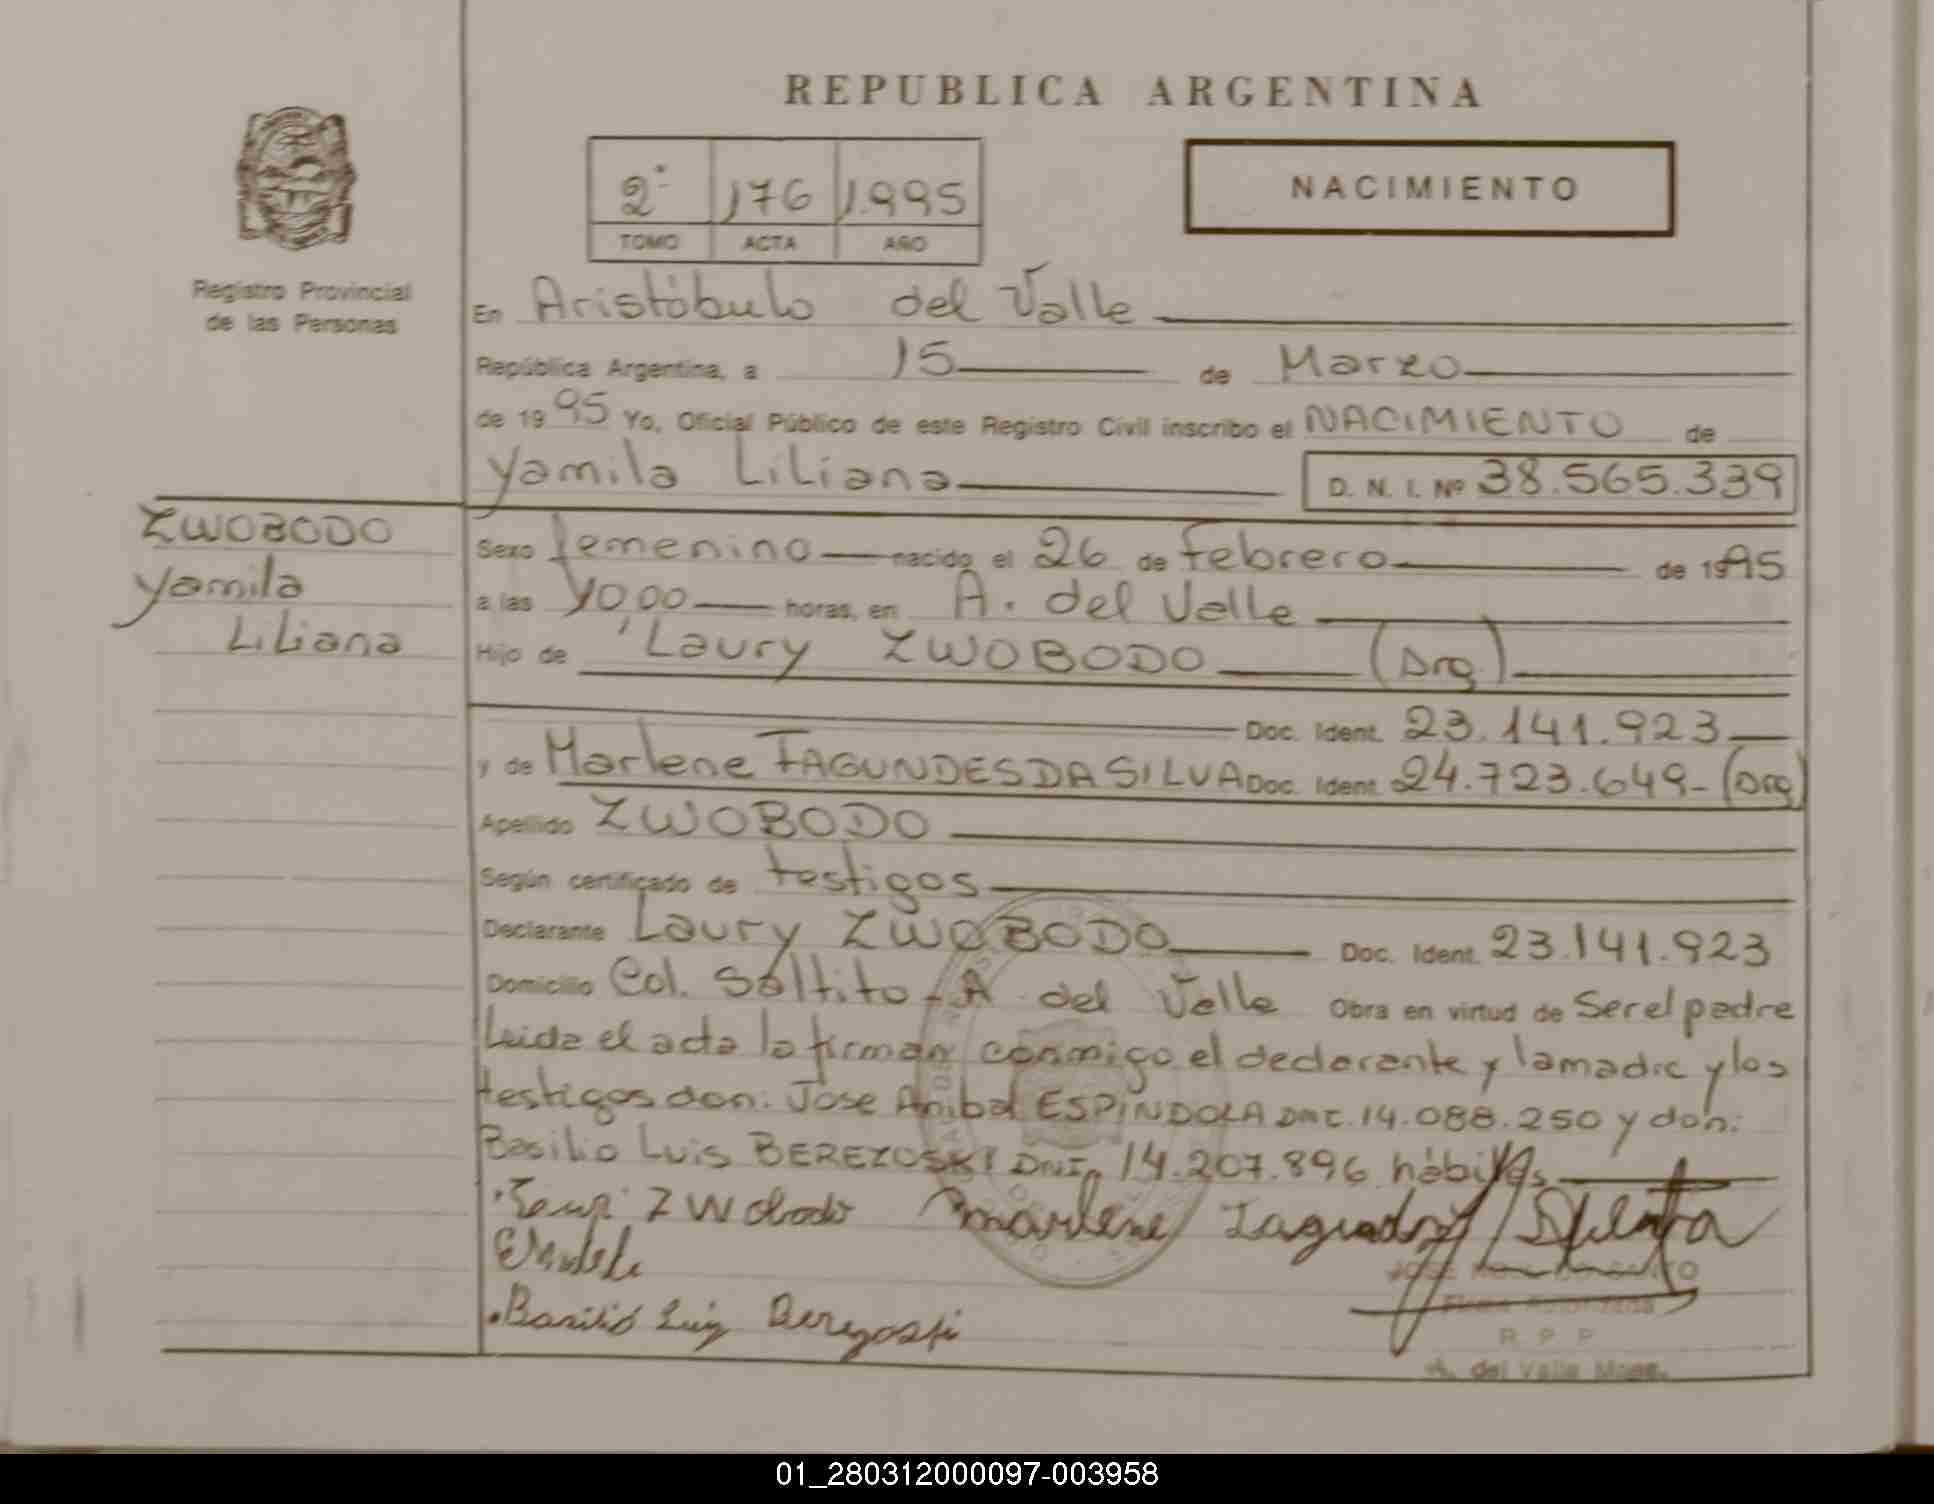 REPUBLICA ARGENTINA
2º 176 1.995
TOMO ACTA AÑO
NACIMIENTO
Registro Provincial
de las Personas
En Aristóbulo del Valle
República Argentina, a 15 de Marzo
de 1995 Yo, Oficial Público de este Registro Civil inscribo el NACIMIENTO de
Yamila Liliana D. N. I. Nº 38.565.339
ZWOBODO
Yamila
Liliana
Sexo femenino nacido el 26 de febrero de 1995
a las 10,00 horas, en A. del Valle
Hijo de Laury ZWOBODO (Arg.)
Doc. Ident. 23.141.923
y de Marlene FAGUNDES DA SILVA Doc. Ident. 24.723.649- (Arg)
Apellido ZWOBODO
Según certificado de testigos
Declarante Laury ZWOBODO Doc. Ident. 23.141.923
Domicilio Col. Saltito - A del Valle Obra en virtud de Ser el padre
Leida el acta la firman conmigo el declarante y la madre y los
testigos don: Jose Anibal ESPINDOLA DNI. 14.088.250 y don:
Basilio Luis BEREZOSKI DNI. 14.207.896 hábiles
Zwobodo Marlene
Basilio Luis
JOSE
Firma Autorizada
R P P
A. del Valle Mnes.
01_280312000097-003958